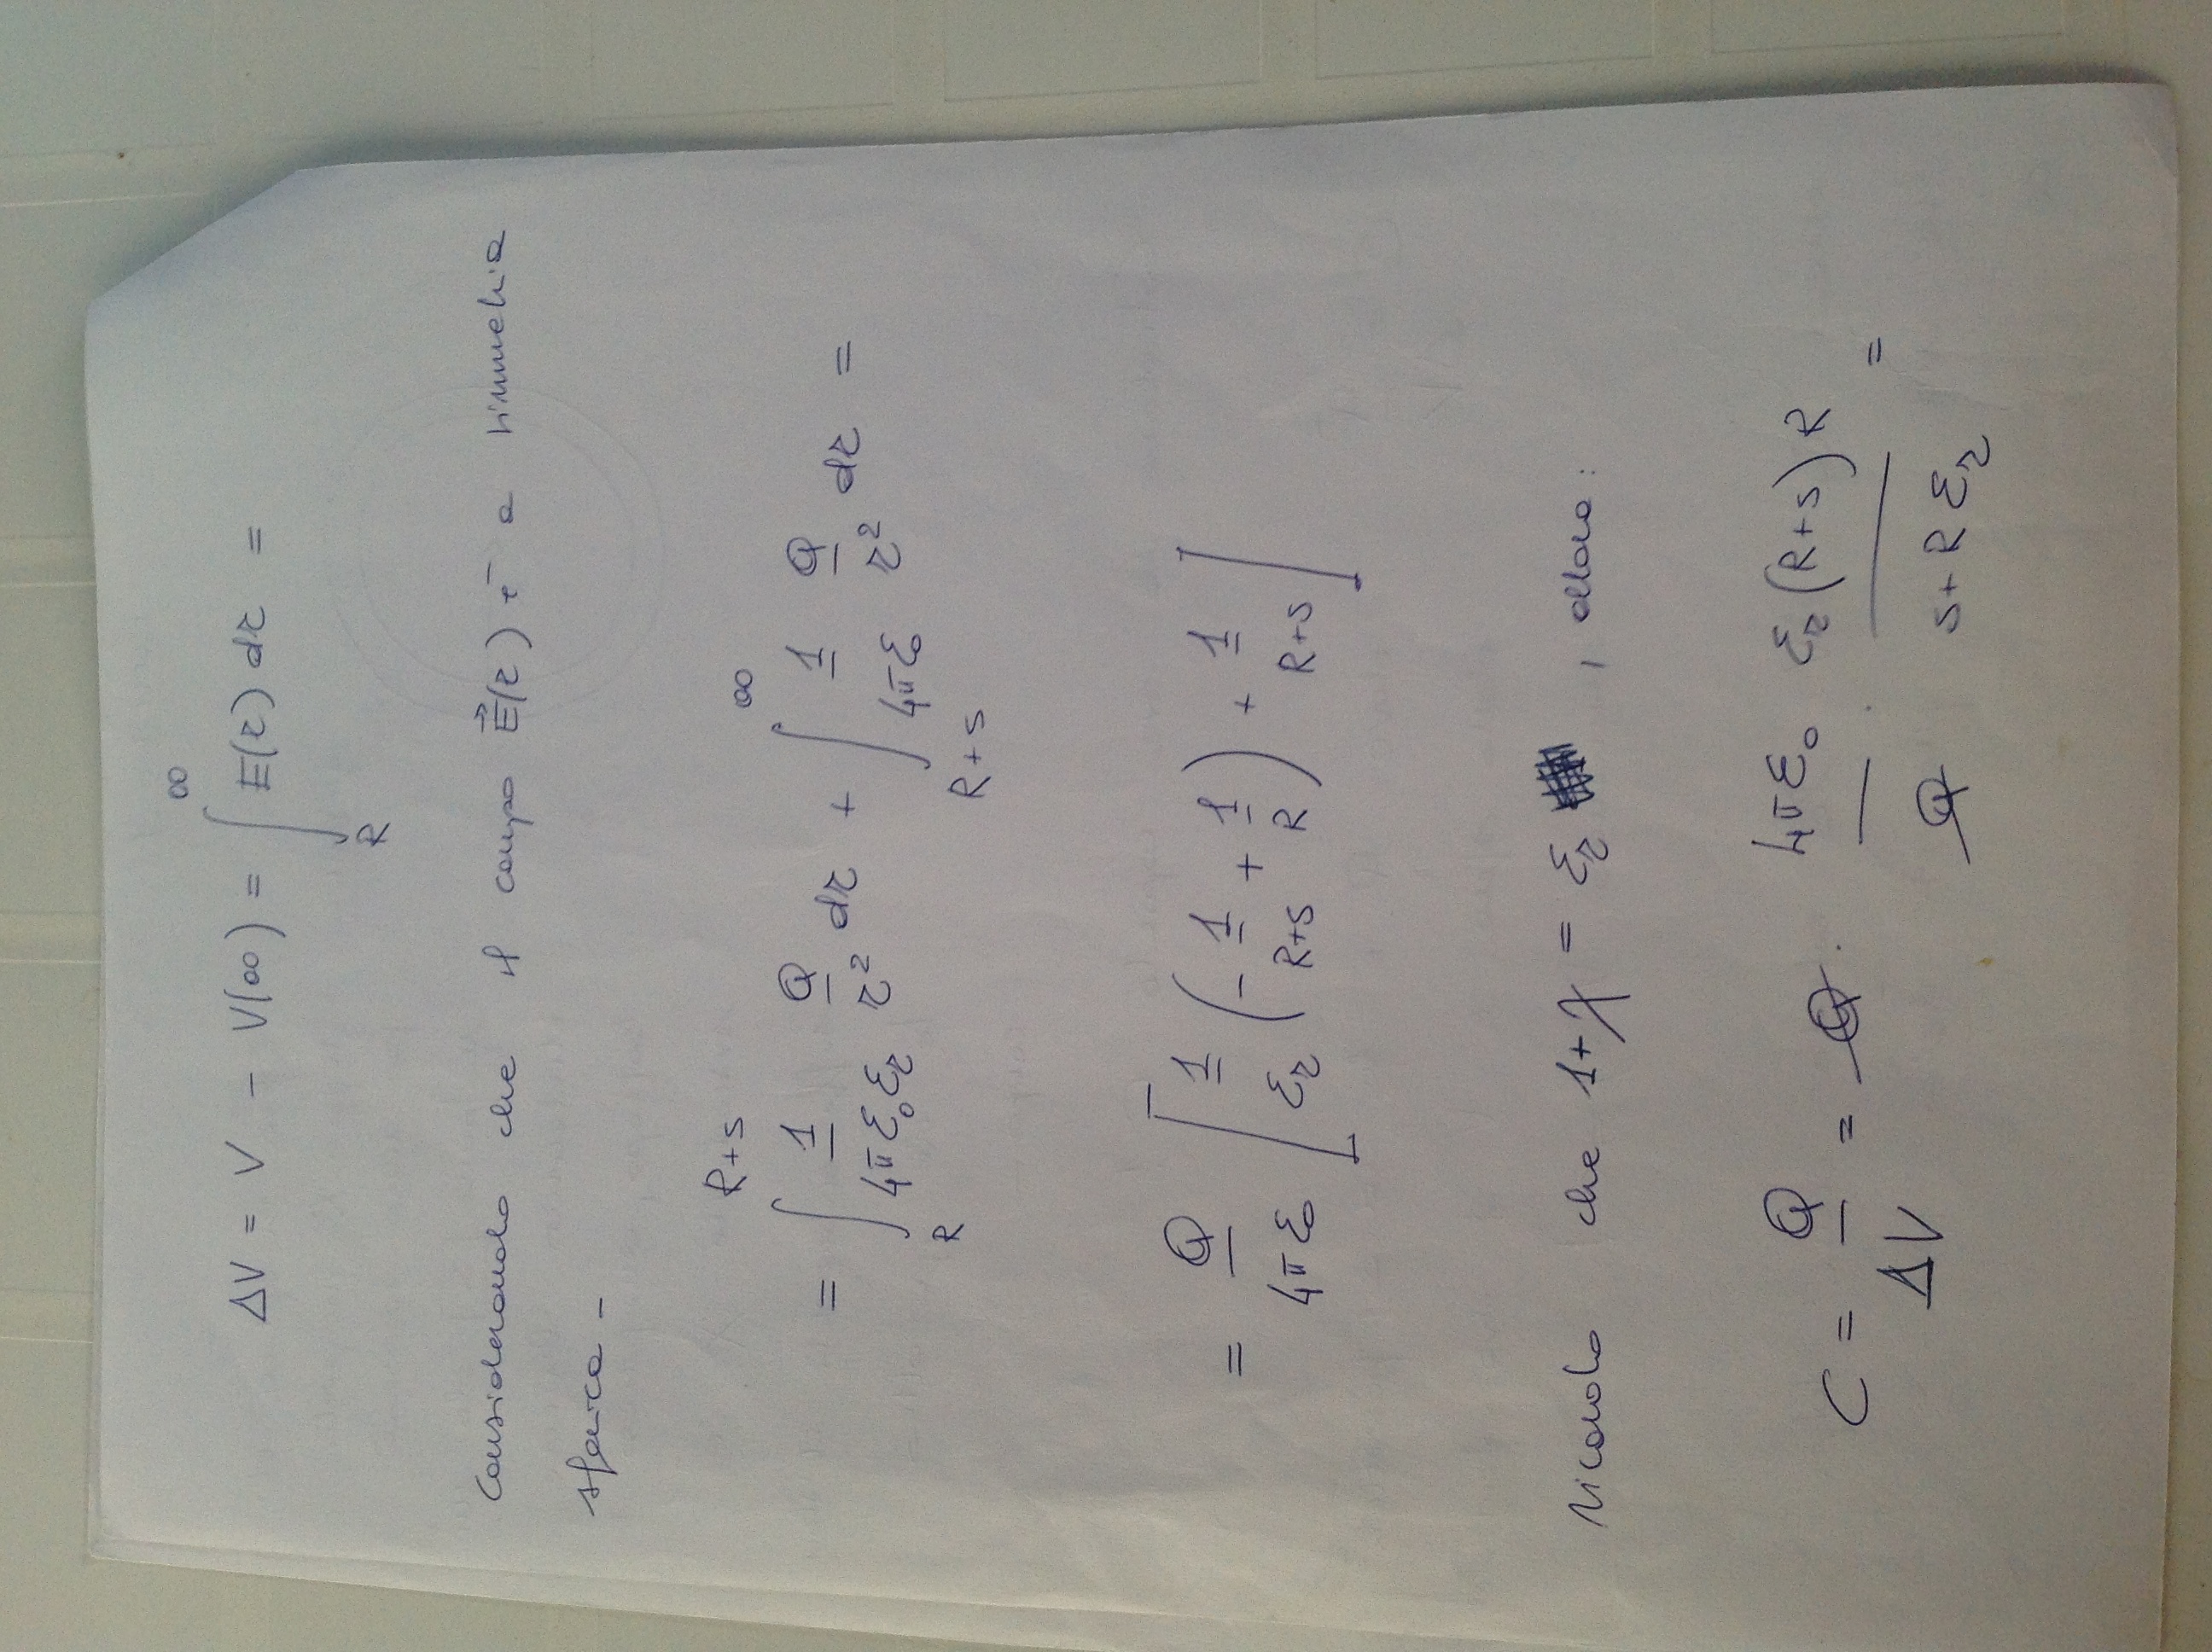 ΔV = V - V(∞) = ∫_R^∞ E(r) dr =
Considerando che il campo E⃗(r) è a simmetria
sferica -
= ∫_R^{R+s} 1/(4π ε₀ εr) Q/r² dr + ∫_{R+s}^∞ 1/(4π ε₀) Q/r² dr =
= Q/(4π ε₀) [ 1/εr ( - 1/(R+s) + 1/R ) + 1/(R+s) ]
Ricordo che 1+χ = εr , allora:
C = Q/ΔV = Q · 4π ε₀/Q · εr (R+s) R/(s + R εr) =